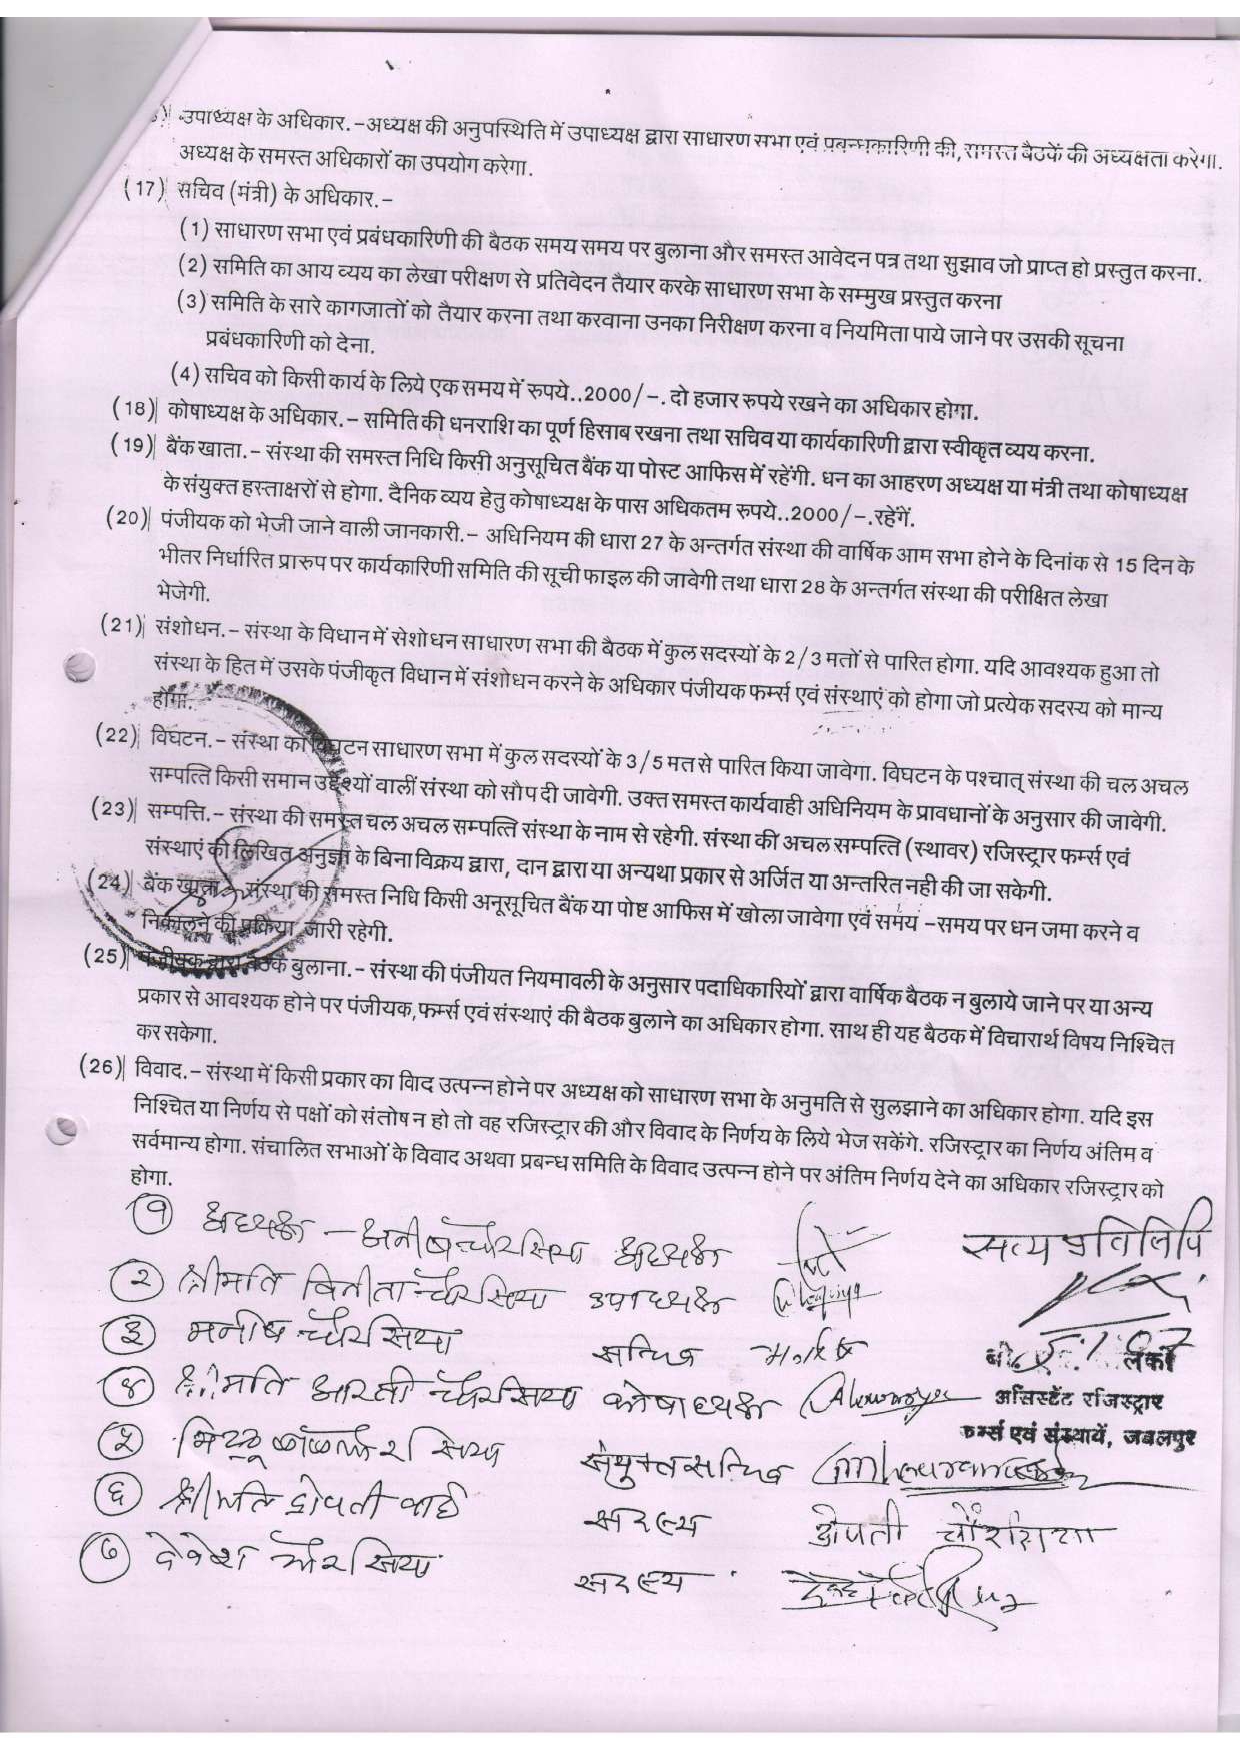 उपाध्यक्ष के अधिकार.-अध्यक्ष की अनुपस्थिति में उपाध्यक्ष द्वारा साधारण सभा एवं प्रबन्धकारिणी की, समस्त बैठकें की अध्यक्षता करेगा.
अध्यक्ष के समस्त अधिकारों का उपयोग करेगा.
(17) सचिव (मंत्री) के अधिकार.-
(1) साधारण सभा एवं प्रबंधकारिणी की बैठक समय समय पर बुलाना और समस्त आवेदन पत्र तथा सुझाव जो प्राप्त हो प्रस्तुत करना.
(2) समिति का आय व्यय का लेखा परीक्षण से प्रतिवेदन तैयार करके साधारण सभा के सम्मुख प्रस्तुत करना
(3) समिति के सारे कागजातों को तैयार करना तथा करवाना उनका निरीक्षण करना व नियमिता पाये जाने पर उसकी सूचना
प्रबंधकारिणी को देना.
(4) सचिव को किसी कार्य के लिये एक समय में रुपये..2000/-. दो हजार रुपये रखने का अधिकार होगा.
(18) कोषाध्यक्ष के अधिकार.- समिति की धनराशि का पूर्ण हिसाब रखना तथा सचिव या कार्यकारिणी द्वारा स्वीकृत व्यय करना.
(19) बैंक खाता.- संस्था की समस्त निधि किसी अनुसूचित बैंक या पोस्ट आफिस में रहेंगी. धन का आहरण अध्यक्ष या मंत्री तथा कोषाध्यक्ष
के संयुक्त हस्ताक्षरों से होगा. दैनिक व्यय हेतु कोषाध्यक्ष के पास अधिकतम रुपये..2000/-.रहेंगें.
(20) पंजीयक को भेजी जाने वाली जानकारी.- अधिनियम की धारा 27 के अन्तर्गत संस्था की वार्षिक आम सभा होने के दिनांक से 15 दिन के
भीतर निर्धारित प्रारुप पर कार्यकारिणी समिति की सूची फाइल की जावेगी तथा धारा 28 के अन्तर्गत संस्था की परीक्षित लेखा
भेजेगी.
(21) संशोधन.- संस्था के विधान में सेशोधन साधारण सभा की बैठक में कुल सदस्यों के 2/3 मतों से पारित होगा. यदि आवश्यक हुआ तो
संस्था के हित में उसके पंजीकृत विधान में संशोधन करने के अधिकार पंजीयक फर्म्स एवं संस्थाएं को होगा जो प्रत्येक सदस्य को मान्य
होगा.
(22) विघटन.- संस्था का विघटन साधारण सभा में कुल सदस्यों के 3/5 मत से पारित किया जावेगा. विघटन के पश्चात् संस्था की चल अचल
सम्पत्ति किसी समान उद्देश्यों वालीं संस्था को सौप दी जावेगी. उक्त समस्त कार्यवाही अधिनियम के प्रावधानों के अनुसार की जावेगी.
(23) सम्पत्ति.- संस्था की समस्त चल अचल सम्पत्ति संस्था के नाम से रहेगी. संस्था की अचल सम्पत्ति (स्थावर) रजिस्ट्रार फर्म्स एवं
संस्थाएं की लिखित अनुज्ञा के बिना विक्रय द्वारा, दान द्वारा या अन्यथा प्रकार से अर्जित या अन्तरित नही की जा सकेगी.
(24) बैंक खाता.- संस्था की समस्त निधि किसी अनूसूचित बैंक या पोष्ट आफिस में खोला जावेगा एवं समय -समय पर धन जमा करने व
निकालने की प्रक्रिया जारी रहेगी.
(25) पंजीयक द्वारा बैठक बुलाना.- संस्था की पंजीयत नियमावली के अनुसार पदाधिकारियों द्वारा वार्षिक बैठक न बुलाये जाने पर या अन्य
प्रकार से आवश्यक होने पर पंजीयक,फर्म्स एवं संस्थाएं की बैठक बुलाने का अधिकार होगा. साथ ही यह बैठक में विचारार्थ विषय निश्चित
कर सकेगा.
(26) विवाद.- संस्था में किसी प्रकार का विाद उत्पन्न होने पर अध्यक्ष को साधारण सभा के अनुमति से सुलझाने का अधिकार होगा. यदि इस
निश्चित या निर्णय से पक्षों को संतोष न हो तो वह रजिस्ट्रार की और विवाद के निर्णय के लिये भेज सकेंगे. रजिस्ट्रार का निर्णय अंतिम व
सर्वमान्य होगा. संचालित सभाओं के विवाद अथवा प्रबन्ध समिति के विवाद उत्पन्न होने पर अंतिम निर्णय देने का अधिकार रजिस्ट्रार को
होगा.
१ अध्यक्ष - अनीष चौरसिया अध्यक्ष
सत्यप्रतिलिपि
२ श्रीमति विनीता चौरसिया उपाध्यक्ष
३ मनीष चौरसिया सचिव
5.1.07
४ श्रीमति आरती चौरसिया कोषाध्यक्ष
असिस्टेंट रजिस्ट्रार
फर्म्स एवं संस्थायें, जबलपुर
५ चौरसिया संयुक्त सचिव
६ श्रीमति द्रोपती बाई सदस्य द्रोपती चौरसिया
७ देवेश चौरसिया सदस्य